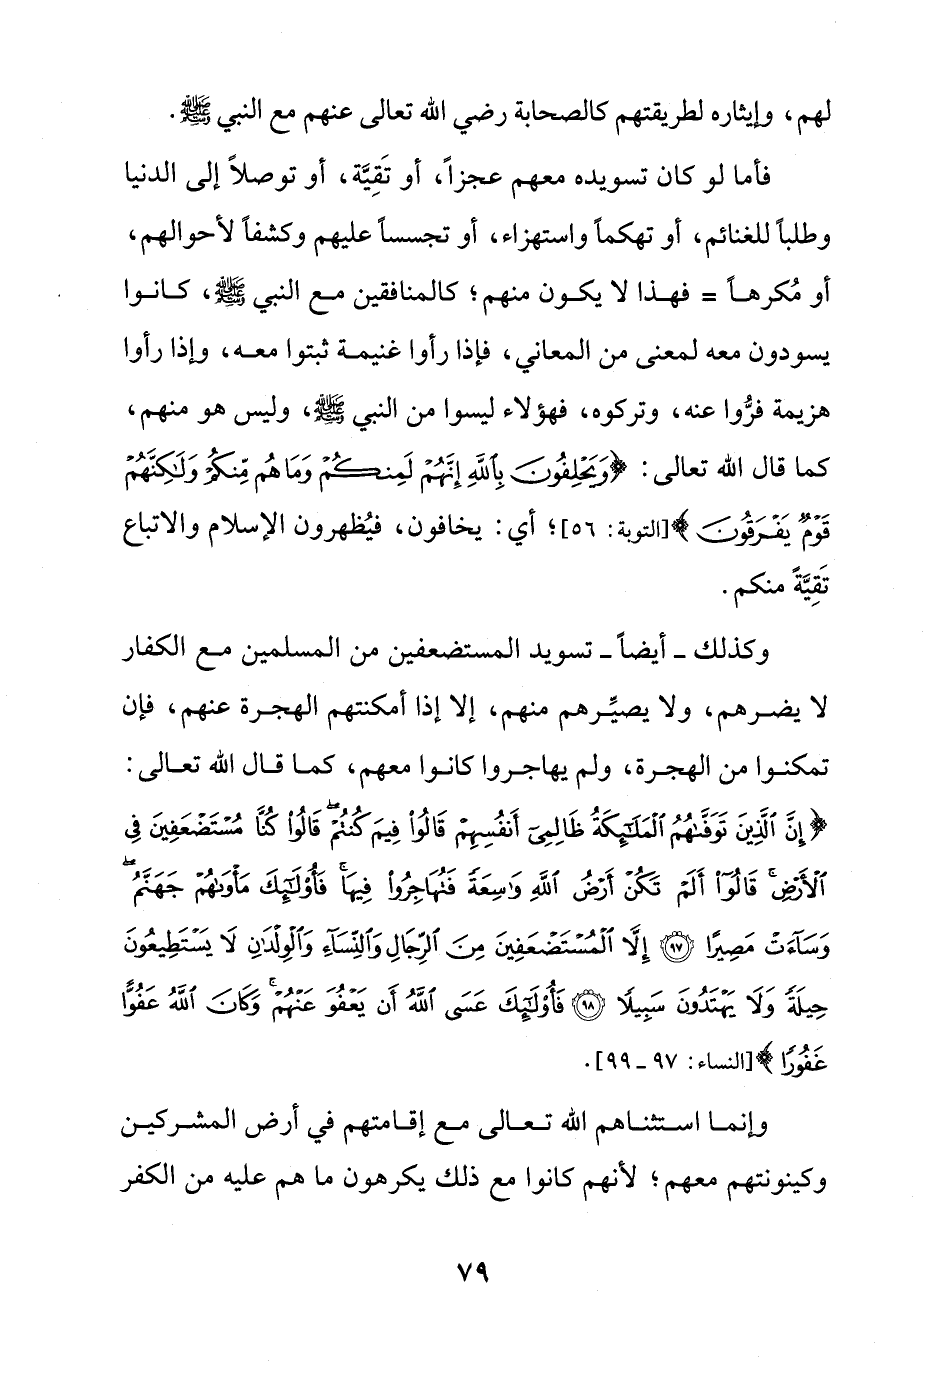 لهم، وإيثاره لطريقتهم كالصحابة رضي الله تعالى عنهم مع النبي ﷺ.
فأما لو كان تسويده معهم عجزاً، أو تَقِيَّة، أو توصلاً إلى الدنيا
وطلباً للغنائم، أو تهكماً واستهزاء، أو تجسساً عليهم وكشفاً لأحوالهم،
أو مُكرهاً = فهذا لا يكون منهم؛ كالمنافقين مع النبي ﷺ، كانوا
يسودون معه لمعنى من المعاني، فإذا رأوا غنيمة ثبتوا معه، وإذا رأوا
هزيمة فرُّوا عنه، وتركوه، فهؤلاء ليسوا من النبي ﷺ، وليس هو منهم،
كما قال الله تعالى: ﴿وَيَحْلِفُونَ بِٱللَّهِ إِنَّهُمْ لَمِنكُمْ وَمَا هُم مِّنكُمْ وَلَٰكِنَّهُمْ
قَوْمٌ يَفْرَقُونَ﴾ [التوبة: ٥٦]؛ أي: يخافون، فيُظهرون الإسلام والاتباع
تَقِيَّةً منكم.
وكذلك ـ أيضاً ـ تسويد المستضعفين من المسلمين مع الكفار
لا يضرهم، ولا يصيِّرهم منهم، إلا إذا أمكنتهم الهجرة عنهم، فإن
تمكنوا من الهجرة، ولم يهاجروا كانوا معهم، كما قال الله تعالى:
﴿إِنَّ ٱلَّذِينَ تَوَفَّىٰهُمُ ٱلْمَلَٰٓئِكَةُ ظَالِمِىٓ أَنفُسِهِمْ قَالُوا۟ فِيمَ كُنتُمْ ۖ قَالُوا۟ كُنَّا مُسْتَضْعَفِينَ فِى
ٱلْأَرْضِ ۚ قَالُوٓا۟ أَلَمْ تَكُنْ أَرْضُ ٱللَّهِ وَٰسِعَةً فَتُهَاجِرُوا۟ فِيهَا ۚ فَأُو۟لَٰٓئِكَ مَأْوَىٰهُمْ جَهَنَّمُ ۖ
وَسَآءَتْ مَصِيرًا ٩٧ إِلَّا ٱلْمُسْتَضْعَفِينَ مِنَ ٱلرِّجَالِ وَٱلنِّسَآءِ وَٱلْوِلْدَٰنِ لَا يَسْتَطِيعُونَ
حِيلَةً وَلَا يَهْتَدُونَ سَبِيلًا ٩٨ فَأُو۟لَٰٓئِكَ عَسَى ٱللَّهُ أَن يَعْفُوَ عَنْهُمْ ۚ وَكَانَ ٱللَّهُ عَفُوًّا
غَفُورًا﴾ [النساء: ٩٧ ـ ٩٩].
وإنما استثناهم الله تعالى مع إقامتهم في أرض المشركين
وكينونتهم معهم؛ لأنهم كانوا مع ذلك يكرهون ما هم عليه من الكفر
٧٩